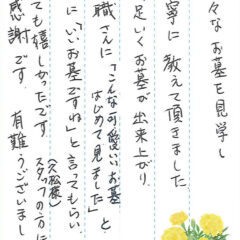 々なお墓を見学し
寧に教えて頂きました
足いくお墓が出来上がり、
職さんに「こんな可愛いいお墓
はじめて見ました」と
に「いいお墓ですね」と言ってもらい、
ても嬉しかったです
スタッフの方に
感謝です 有難うございまし